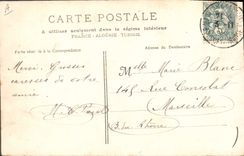 CARTE POSTALE
à utiliser seulement dans le régime intérieur
FRANCE - ALGÉRIE - TUNISIE
Partie réservée à la Correspondance
Adresse du Destinataire
Merci. Grosses
caresses de votre
Melle Marie Blanc
145 Rue Consolat
Marseille
B. du Rhône